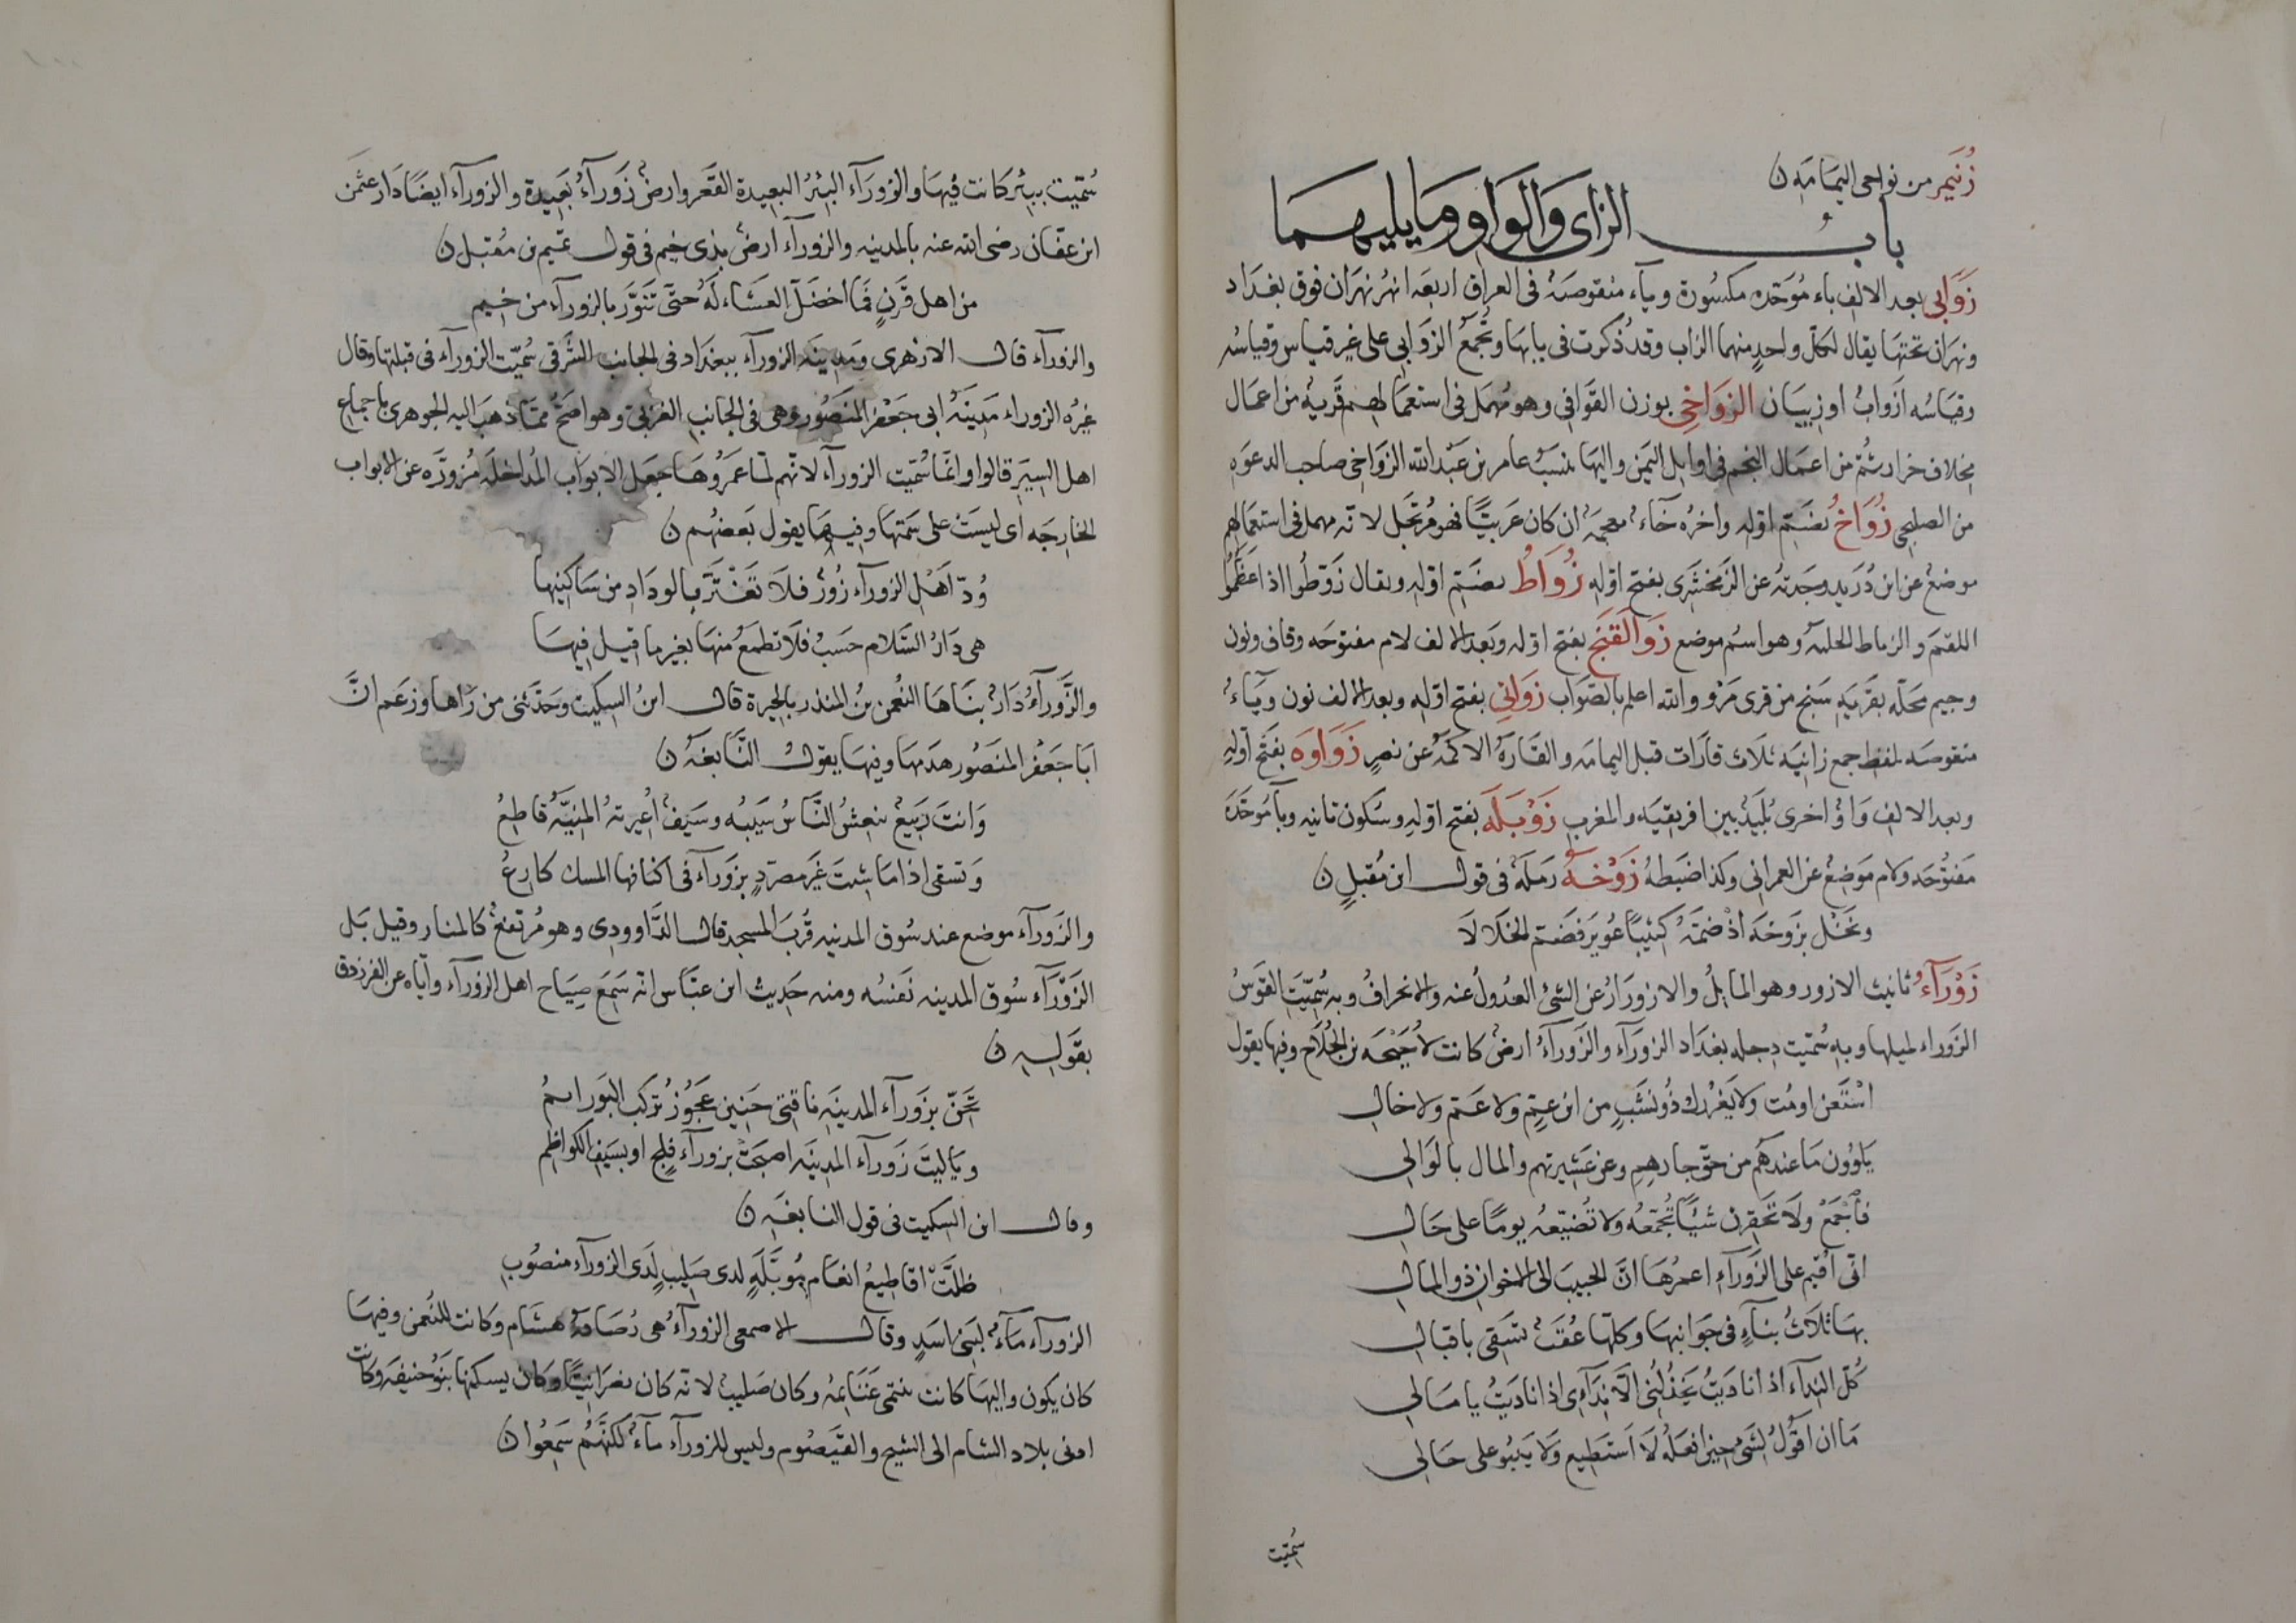 زُنَيمر من نواحى اليمامه ن
باب الزاى والواو وما يليهما
زَوَابى بعد الالف باء مُوَحّده مكسُورة وياء منقوصَة فى العراق اربعه انهر نهران فوق بغداد
ونهران تحتها يقال لكلّ واحدٍ منهما الزاب وقد ذكرت فى بابها وتُجمع الزَوابى على غير قياس وقياسُه
وقياسُه ازَوابُ او زيبيَان الزَوَاخِى بوزن القَوَافى وهو مُهمَل فى استعمالهم قَرية من اعمَال
مخلاف خراد ثمّ من اعمَال النجم فى اوايل اليَمن واليها ينسَبُ عامر بن عَبْد الله الزَوَاخى صاحب الدعوَه
من الصليحى زُوَاخُ بضَمّ اوّله واخرُه خآء معجمَة ان كان عَربيًّا فهو مُرتَجل لانّه مهمل فى استعمالهم
موضعٌ عن ابن دُرَيد وجَدتهُ عن الزَمخشَرى بفتح اوّله زُوَاطُ بضَمّ اوّله ويقال زَوّطُوا اذا عَظّمُوا
اللقمَ والزياط الجلبه وهو اسم موضع زَوَالقَنَج بفتح اوّله وبَعد الالف لام مفتوحَه وقاف ونون
وجيم محَلّه بقَريَةِ سَنج من قرى مَرْو والله اعلم بالصَوَاب زَوَانِى بفتح اوّله وبعد الالف نون ويَآء
منقوصَه بلفظ جمع زانيَه ثلاث قارَات قبل اليمامه والقَارَةُ الاكمَةُ عن نصرٍ زَوَاوَه بفتَح اوّلِه
وبعد الالف وَاوٌ اخرى بُليَدٌ بين افريقيَه والمغرب زَوْبَلَه بفتح اوّلهِ وسكون ثانيه وبآء مُوَحّدة
مَفتُوحَه ولام مَوضِعٌ عن العمرانى وكذا ضَبَطهُ زَوْخَةُ رملَةٌ فى قول ابن مُقبلٍ ن
ونخلٍ بزَوخةَ اذْ ضمّهُ كثيبًا عُوَيرَ فَضَمّ الخَلَالَا
زَوْرَآءُ تانيث الازور وهو المايلُ والازورَارُ عن الشئ العدُولُ عنه والانحرافُ وبه سُمّيَتِ القَوسُ
الزَوراء لميلها وبهِ سُمّيت دجله بغدَاد الزورَآء والزَورآءُ ارضٌ كانت لاُحَيْحَه بن الجُلَاحِ وفيها يقول
اسْتَغن اومُت ولا يَغرُرك ذُو نشَبٍ من ابن عمٍّ ولا عَمّ ولا خال
يَلوُون مَا عندهُم من حقّ جارهم وعن عشيرتهم والمال بالوَالى
فَاجْمَعْ ولَا تَحقِرن شيئًا تُجمّعُه ولا تُضَيّعهُ يومًا على حَال
انّى اُقيم على الزَورآءِ اعمرُهَا انَّ الحبيبَ الى الاخوان ذو المال
بهَا ثلَاثُ بنآءٍ فى جَوَانبهَا وكلّها عُقَبٌ تسقى باقبال
كُلّ النِدآءِ اذا نادَيتُ يخذُلُنى الّا نِدَآءِى اذا نادَيتُ يا مَالى
مَا ان اقوُلُ لِشَىْءٍ حِينَ افعَلُهُ لَا اَستَطِيع وَلا يَنبُو على حَالى
سُمّيت
سُمّيت ببئر كانت فيهَا والزورَآء البئرُ البعيدة القَعر وارضٌ زَورآءُ بَعيدة والزورآء ايضًا دَار عثمن
ابن عفّان رضى الله عنه بالمدينه والزورآء ارضٌ بذى خيم فى قول تميم بن مُقبلٍ ن
من اهل قَرنٍ فَمَا اخضَلّ العشَاء لَهُ حتَّى تَنَوَّرَ بالزورآء من خيم
والزورآء قال الازهرى ومَدينَه الزورآء ببغدَاد فى الجانب الشَرقى سُمّيت الزورآء فى قبلتها وقال
غيرُه الزوراء مَدِينَةُ ابى جَعْفر المنصُور وهى فى الجانب الغربىّ وهو اصَحُّ ممّا ذهَب اليه الجوهرى باجماع
اهل السِيَر قالوا وانّما سُمّيت الزورآء لانّهم لمّا عمَرُوهَا جعَل الابوَاب المُداخلَه مُزورَّه عن الابواب
الخارجَه اى ليسَتْ على سَمتهَا وفيهَا يقول بَعضهُم ن
وُدّ اَهْلِ الزورآء زُورٌ فلَا تَغْتَرَّ بالودَادِ من سَاكِنِيها
هى دَارُ السَّلام حَسبُ فلَا تطمَعْ منهَا بغير ما قيل فيهَا
والزَّورَآءُ دَارٌ بنَاهَا النُعمن بنُ المنذر بالحِيرة قال ابنُ السِكيت وحَدّثنى من رآها وزعَم انَّ
ابَا جَعْفر المنصُور هدَمهَا وفيهَا يقول النَّابغَه ن
وَانتَ رَبيعٌ ينعشُ النَّاسُ سَيبُه وسَيفٌ اُعيرتهُ المنيّةُ قاطعُ
وَتسقى اذا مَا شِئتَ غَيرَ مصرّدٍ بزَورآء فى اكنافها المسك كارعُ
والزَورآء موضع عند سُوق المدينه قُربَ المسجد قال الدَّاوودى وهو مُرتفعٌ كالمنار وقيل بَل
الزَوْرَآء سُوق المدينه نَفسُه ومنه حَديث ابن عبّاس انّه سَمَعَ صِيَاح اهل الزورآء وايّاه عن الفرزدق
بقَولِهِ ن
تَحِنّ بزَورآء المدينَه ناقتى حَنِين عَجُوزٌ تركب البَورائمُ
ويَاليتَ زَورآء المدِينَه اصبَحَتْ بزورآء فلج او بسَيف الكواظم
وقال ابن السِكيت فى قول النابغَه ن
ظلَّتْ اقاطيعُ انعَام مُؤبَّلَةٍ لدى صَليبٍ لَدَى الزورآءِ منصُوبِ
الزورآء مَآءٌ لبَنى اسَدٍ وقال الاصمعى الزورآءُ هى رُصَافةُ هشَام وكَانت للنُعمن وفيهَا
كان يكون واليهَا كانت تنتهى غنَايمُه وكان صَليب لانّه كان نصرَانيّا وكان يسكنها بَنُو حنيفه وكانت
ادنى بلاد الشام الى الشيح والقَيصُوم وليس للزورآء مآءٌ لكنّهُم سَمَعُوا ن